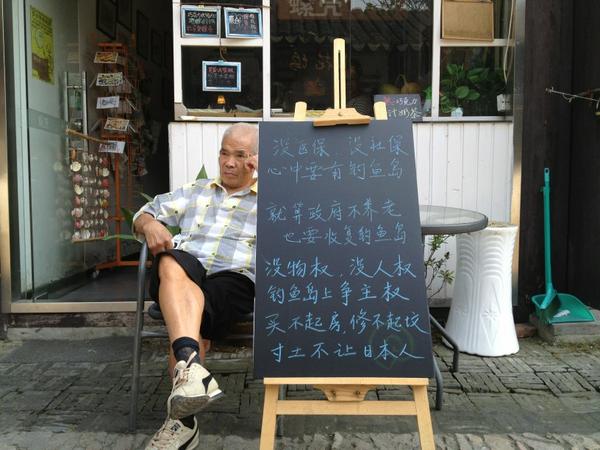 没医保、没社保
心中要有钓鱼岛
就算政府不养老
也要收复钓鱼岛
没物权，没人权
钓鱼岛上争主权
买不起房，修不起坟
寸土不让日本人